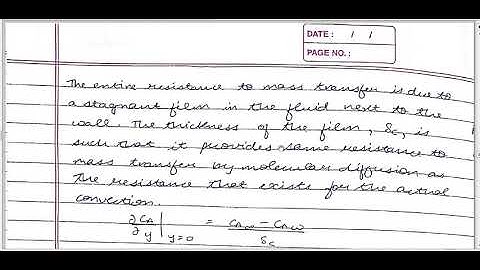 DATE : / /
PAGE NO. :
The entire resistance to mass transfer is due to
a stagnant film in the fluid next to the
wall. The thickness of the film, δc, is
such that it provides same resistance to
mass transfer by molecular diffusion as
the resistance that exists for the actual
convection.
∂CA/∂y |y=0 = CA∞ − CAw / δc